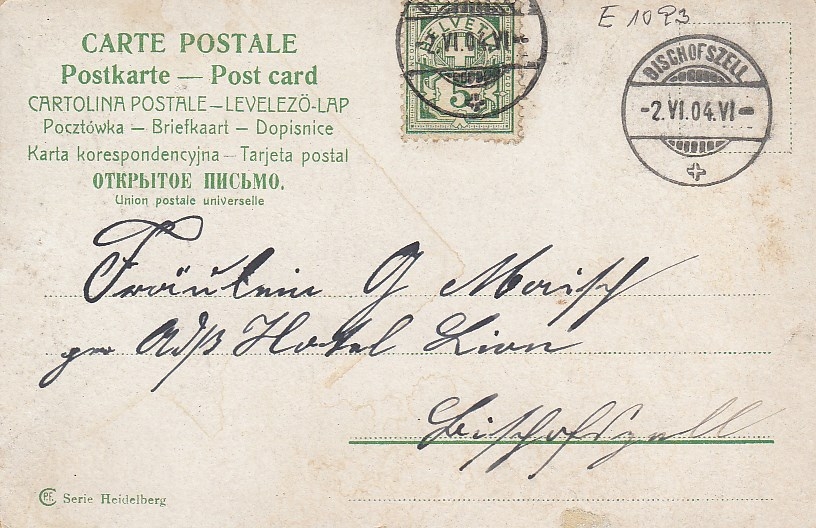 E 1093
CARTE POSTALE
Postkarte — Post card
CARTOLINA POSTALE — LEVELEZÖ-LAP
Pocztówka — Briefkaart — Dopisnice
Karta korespondencyjna — Tarjeta postal
ОТКРЫТОЕ ПИСЬМО.
Union postale universelle
HELVETIA
5
BISCHOFSZELL
-2.VI.04.VI-
Fräulein G Morisch
pr Adß Hotel Lion
Bischofszell
P.F. Serie Heidelberg